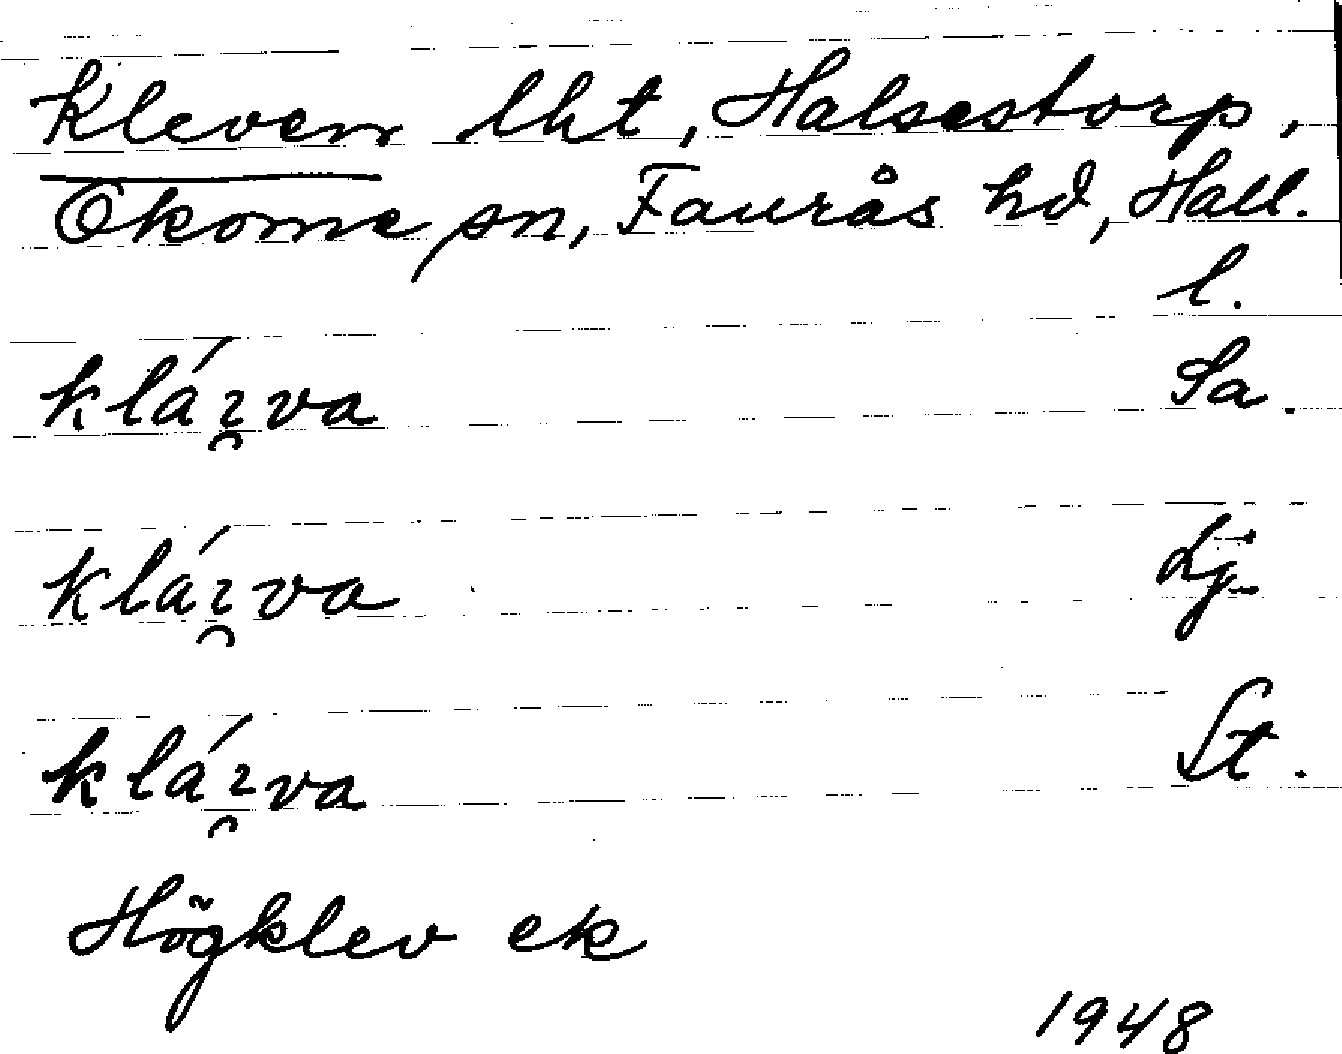 Kleven lht, Halsestorp,
Okome sn, Faurås hd, Hall.
l.
kláɿ̯va Sa.
kláɿ̯va Lj.
kláɿ̯va St.
Högklev ek
1948